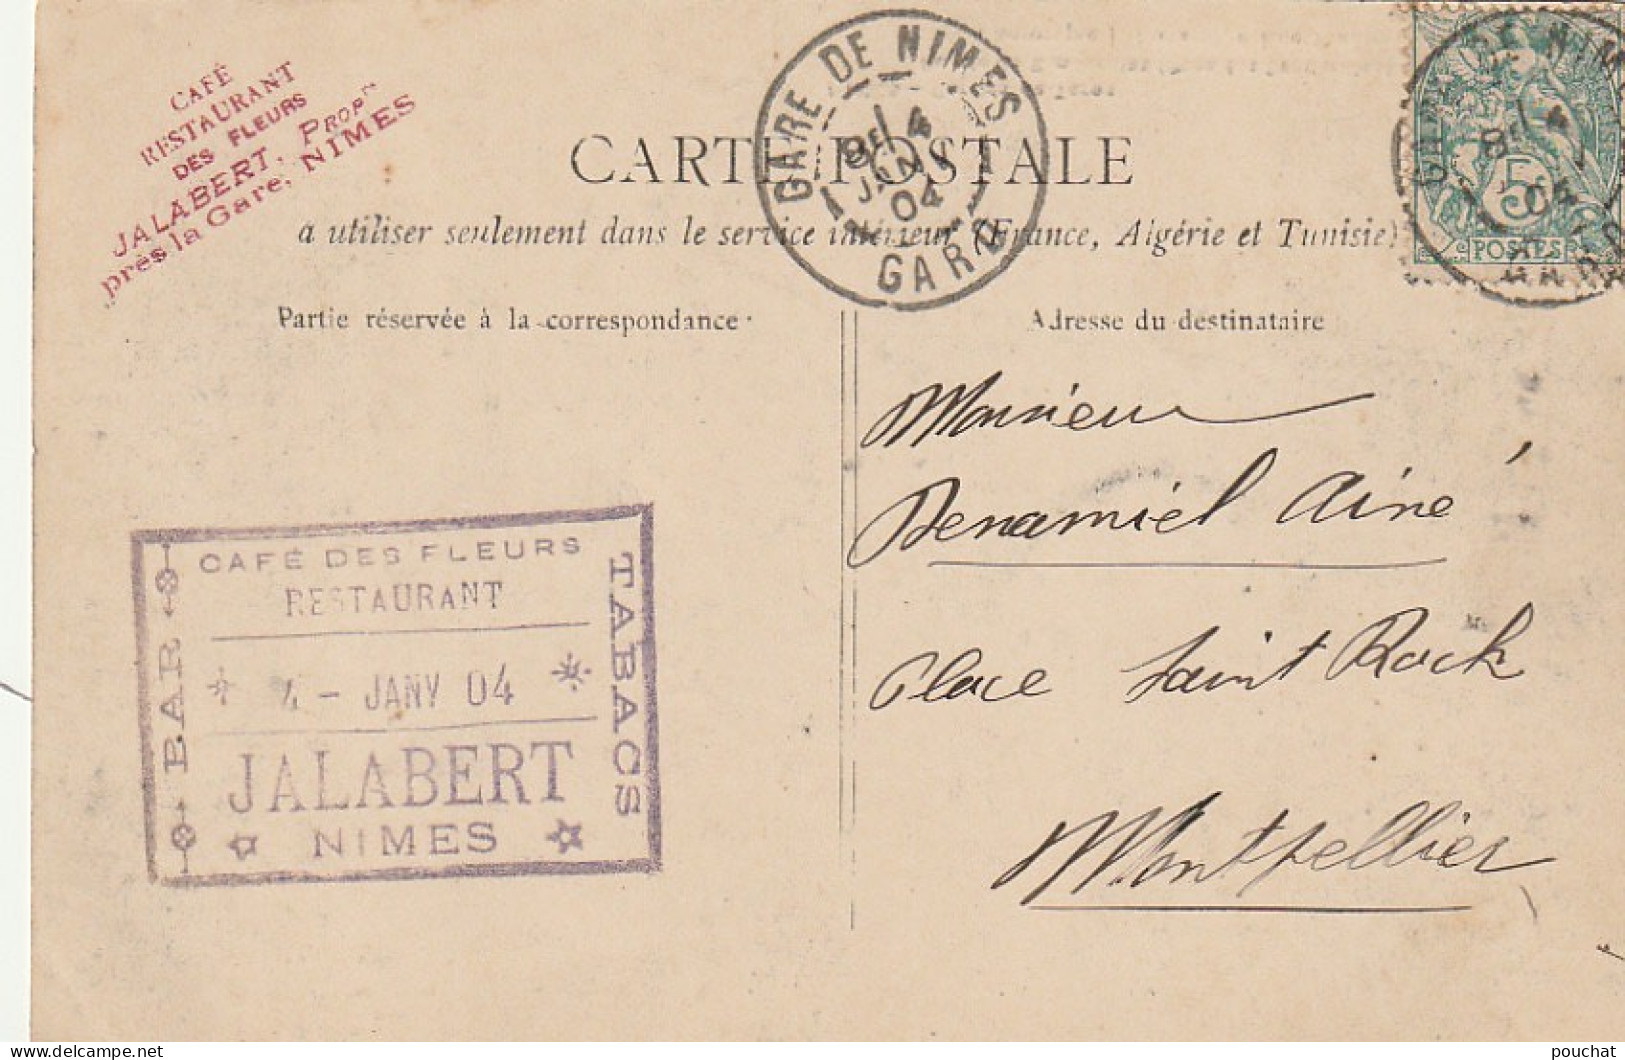 CAFÉ
RESTAURANT
DES FLEURS
JALABERT, PROPre
près la Gare, NIMES
GARE DE NIMES
8E 4
JANV
04
GARD
DE NIMES
8E 4
04
5c
POSTES
CARTE POSTALE
a utiliser seulement dans le service intérieur (France, Algérie et Tunisie)
Partie réservée à la correspondance
Adresse du destinataire
Monsieur
Denamiel Ainé
Place Saint Rock
Montpellier
CAFÉ DES FLEURS
RESTAURANT
4 - JANV 04
JALABERT
NIMES
BAR
TABACS
delcampe.net
pouchat